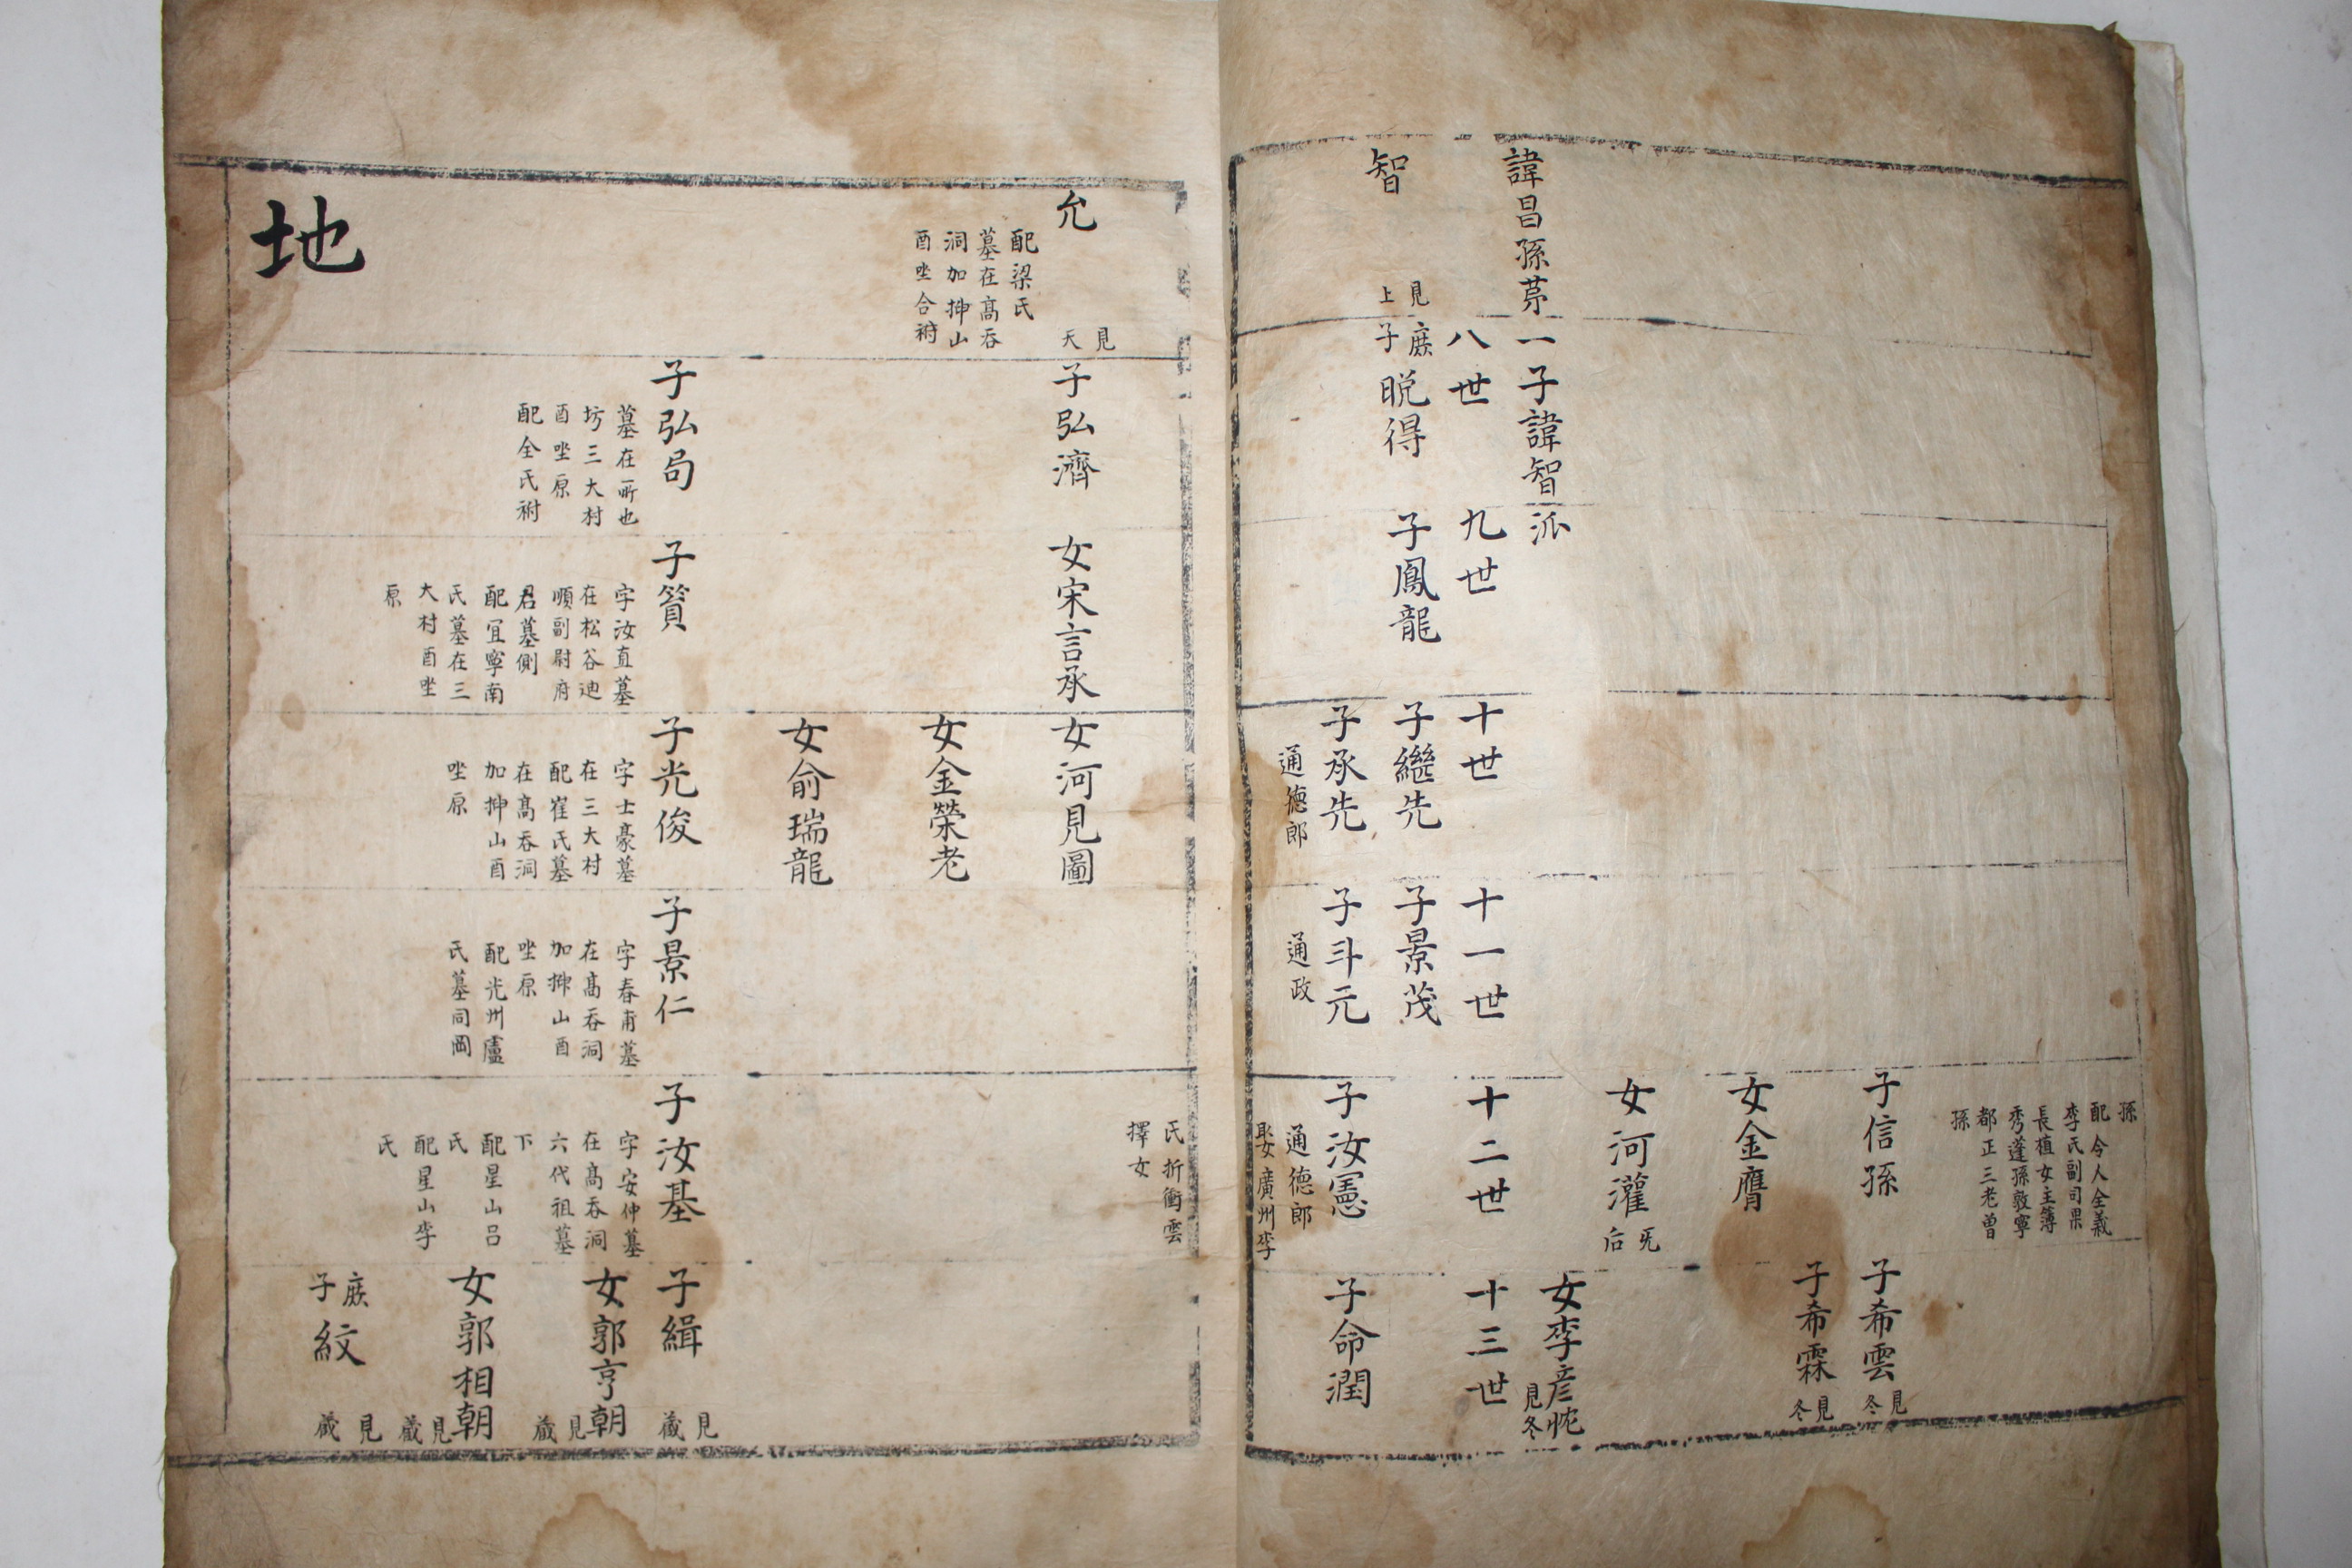 孫
配令人全義
李氏副司果
長植女主簿
秀蓬孫敦寧
都正三老曾
孫
子信孫
子希雲
見冬
子希霖
見冬
女金膺
女河灌
后
女李彦
見冬
諱昌孫苐一子諱智派
八世
九世
十世
十一世
十二世
十三世
智
見上
庶子
得
子鳳龍
子繼先
子景茂
子承先
通德郎
子斗元
通政
子汝憲
通德郎
娶廣州李
子命潤
氏折衝雲
擇女
允
見天
配梁氏
墓在髙吞
洞加抻山
酉坐合祔
子弘濟
女宋言承
女河見圖
女金榮老
女俞瑞龍
子弘局
墓在所也
坊三大村
酉坐原
配全氏祔
子贇
字汝直墓
在松谷迪
順副尉府
君墓側
配冝寧南
氏墓在三
大村酉坐
原
子光俊
字士豪墓
在三大村
配崔氏墓
在髙吞洞
加抻山酉
坐原
子景仁
字春甫墓
在髙吞洞
加抻山酉
坐原
配光州盧
氏墓同岡
子汝基
字安仲墓
在髙吞洞
六代祖墓
下
配星山呂
氏
配星山李
氏
子緝
見歲
女郭亨朝
見歲
女郭相朝
見歲
庶子
紋
見歲
地